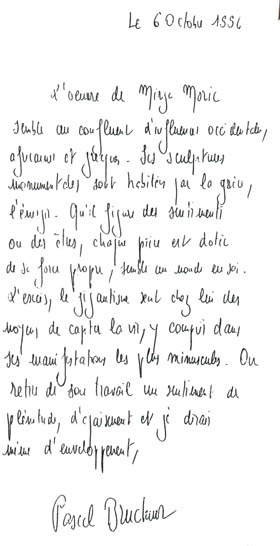 Le 6 Octobre 1994
L'oeuvre de Mirza Moric
semble au confluent d'influences occidentales,
africaines et grecques. Ses sculptures
monumentales sont habitées par la grâce,
l'énergie. Qu'il figure des sentiments
ou des êtres, chaque pièce est dotée
de sa force propre, semble un monde en soi.
L'excès, le gigantisme sont chez lui des
moyens de capter la vie, y compris dans
ses manifestations les plus minuscules. On
retire de son travail un sentiment de
plénitude, d'apaisement et je dirais
même d'enveloppement,
Pascal Bruckner